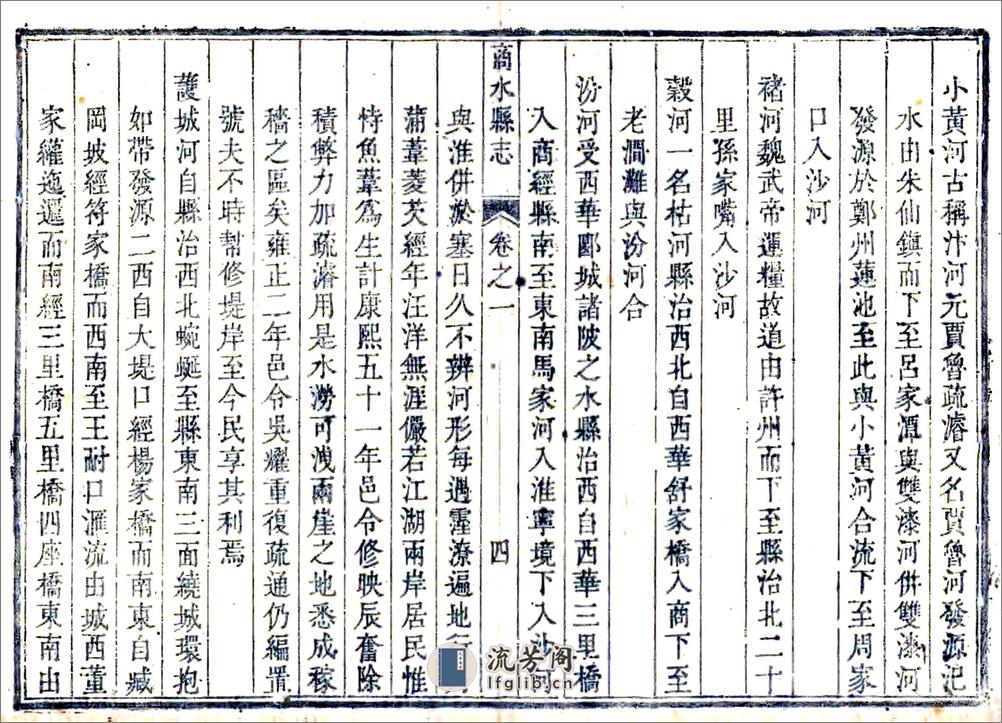 小黃河古稱汴河元賈魯疏濬又名賈魯河發源汜
水由朱仙鎮而下至呂家潭與雙洎河併雙洎河
發源於鄭州蓮池至此與小黃河合流下至周家
口入沙河
褚河魏武帝運糧故道由許州而下至縣治北二十
里孫家嘴入沙河
穀河一名枯河縣治西北自西華舒家橋入商下至
老澗灘與汾河合
汾河受西華郾城諸陂之水縣治西自西華三里橋
入商經縣南至東南馬家河入淮寧境下入沙河
商水縣志 卷之一 四
與淮併淤塞日久不辨河形每遇霪潦遍地
蒲葦菱芡經年汪洋無涯儼若江湖兩岸居民惟
恃魚葦為生計康熙五十一年邑令修映辰奮除
積弊力加疏濬用是水澇可洩兩崖之地悉成稼
穡之區矣雍正二年邑令吳耀重復疏通仍編置
號夫不時幫修堤岸至今民享其利焉
護城河自縣治西北蜿蜒至縣東南三面繞城環抱
如帶發源二西自大堤口經楊家橋而南東自臧
岡坡經符家橋而西南至王耐口滙流由城西董
家䃭迤邐而南經三里橋五里橋四座橋東南由
流芳阁
lfglib.cn